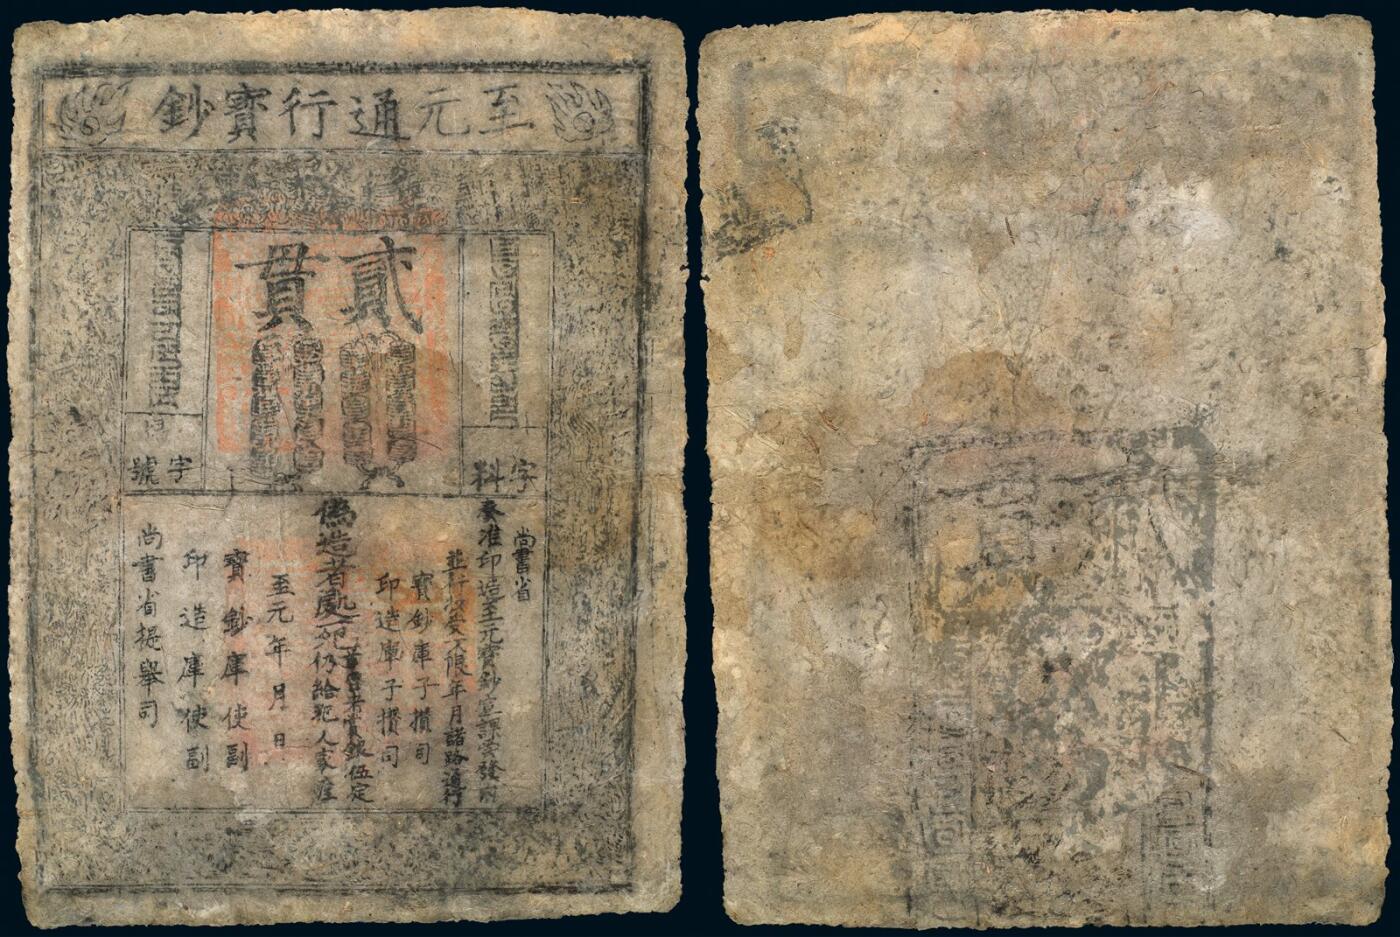 至元通行寶鈔
貳貫
字料
字號
尚書省
奏准印造至元寶鈔宣課差發內
並行收受不限年月諸路通行
寶鈔庫子攢司
印造庫子攢司
偽造者處死
首告者賞銀伍定
仍給犯人家產
至元 年 月 日
寶鈔庫使副
印造庫使副
尚書省提舉司
貳貫